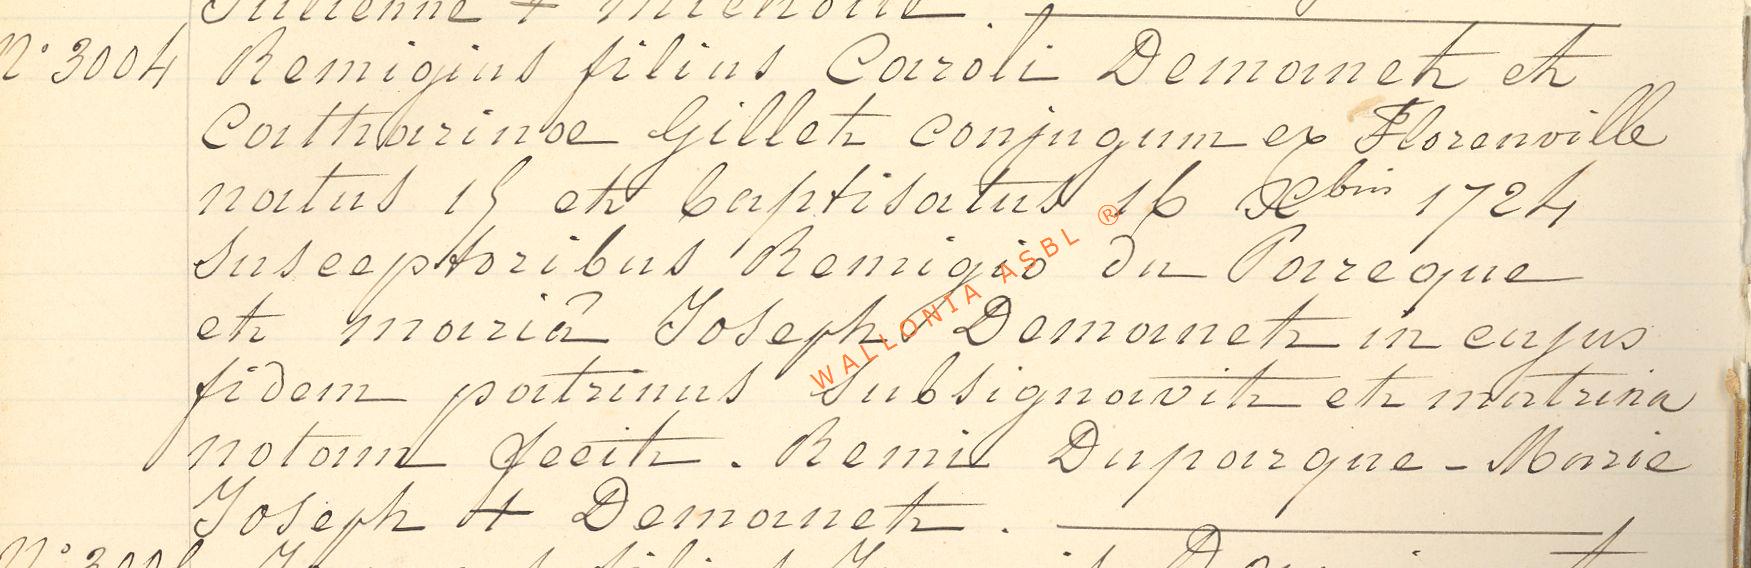 Julienne +
N° 3004 Remigius filius Caroli Demaneth et
Catharinae Gilleth conjugum ex Florenville
natus 15 et baptisatus 16 Xbris 1724
susceptoribus Remigio du Parcque
et mariâ Joseph. Demaneth in cujus
fidem patrinus subsignavit et matrina
notam fecit. Remi Duparque - Marie
Joseph + Demaneth.
WALLONIA ASBL ®